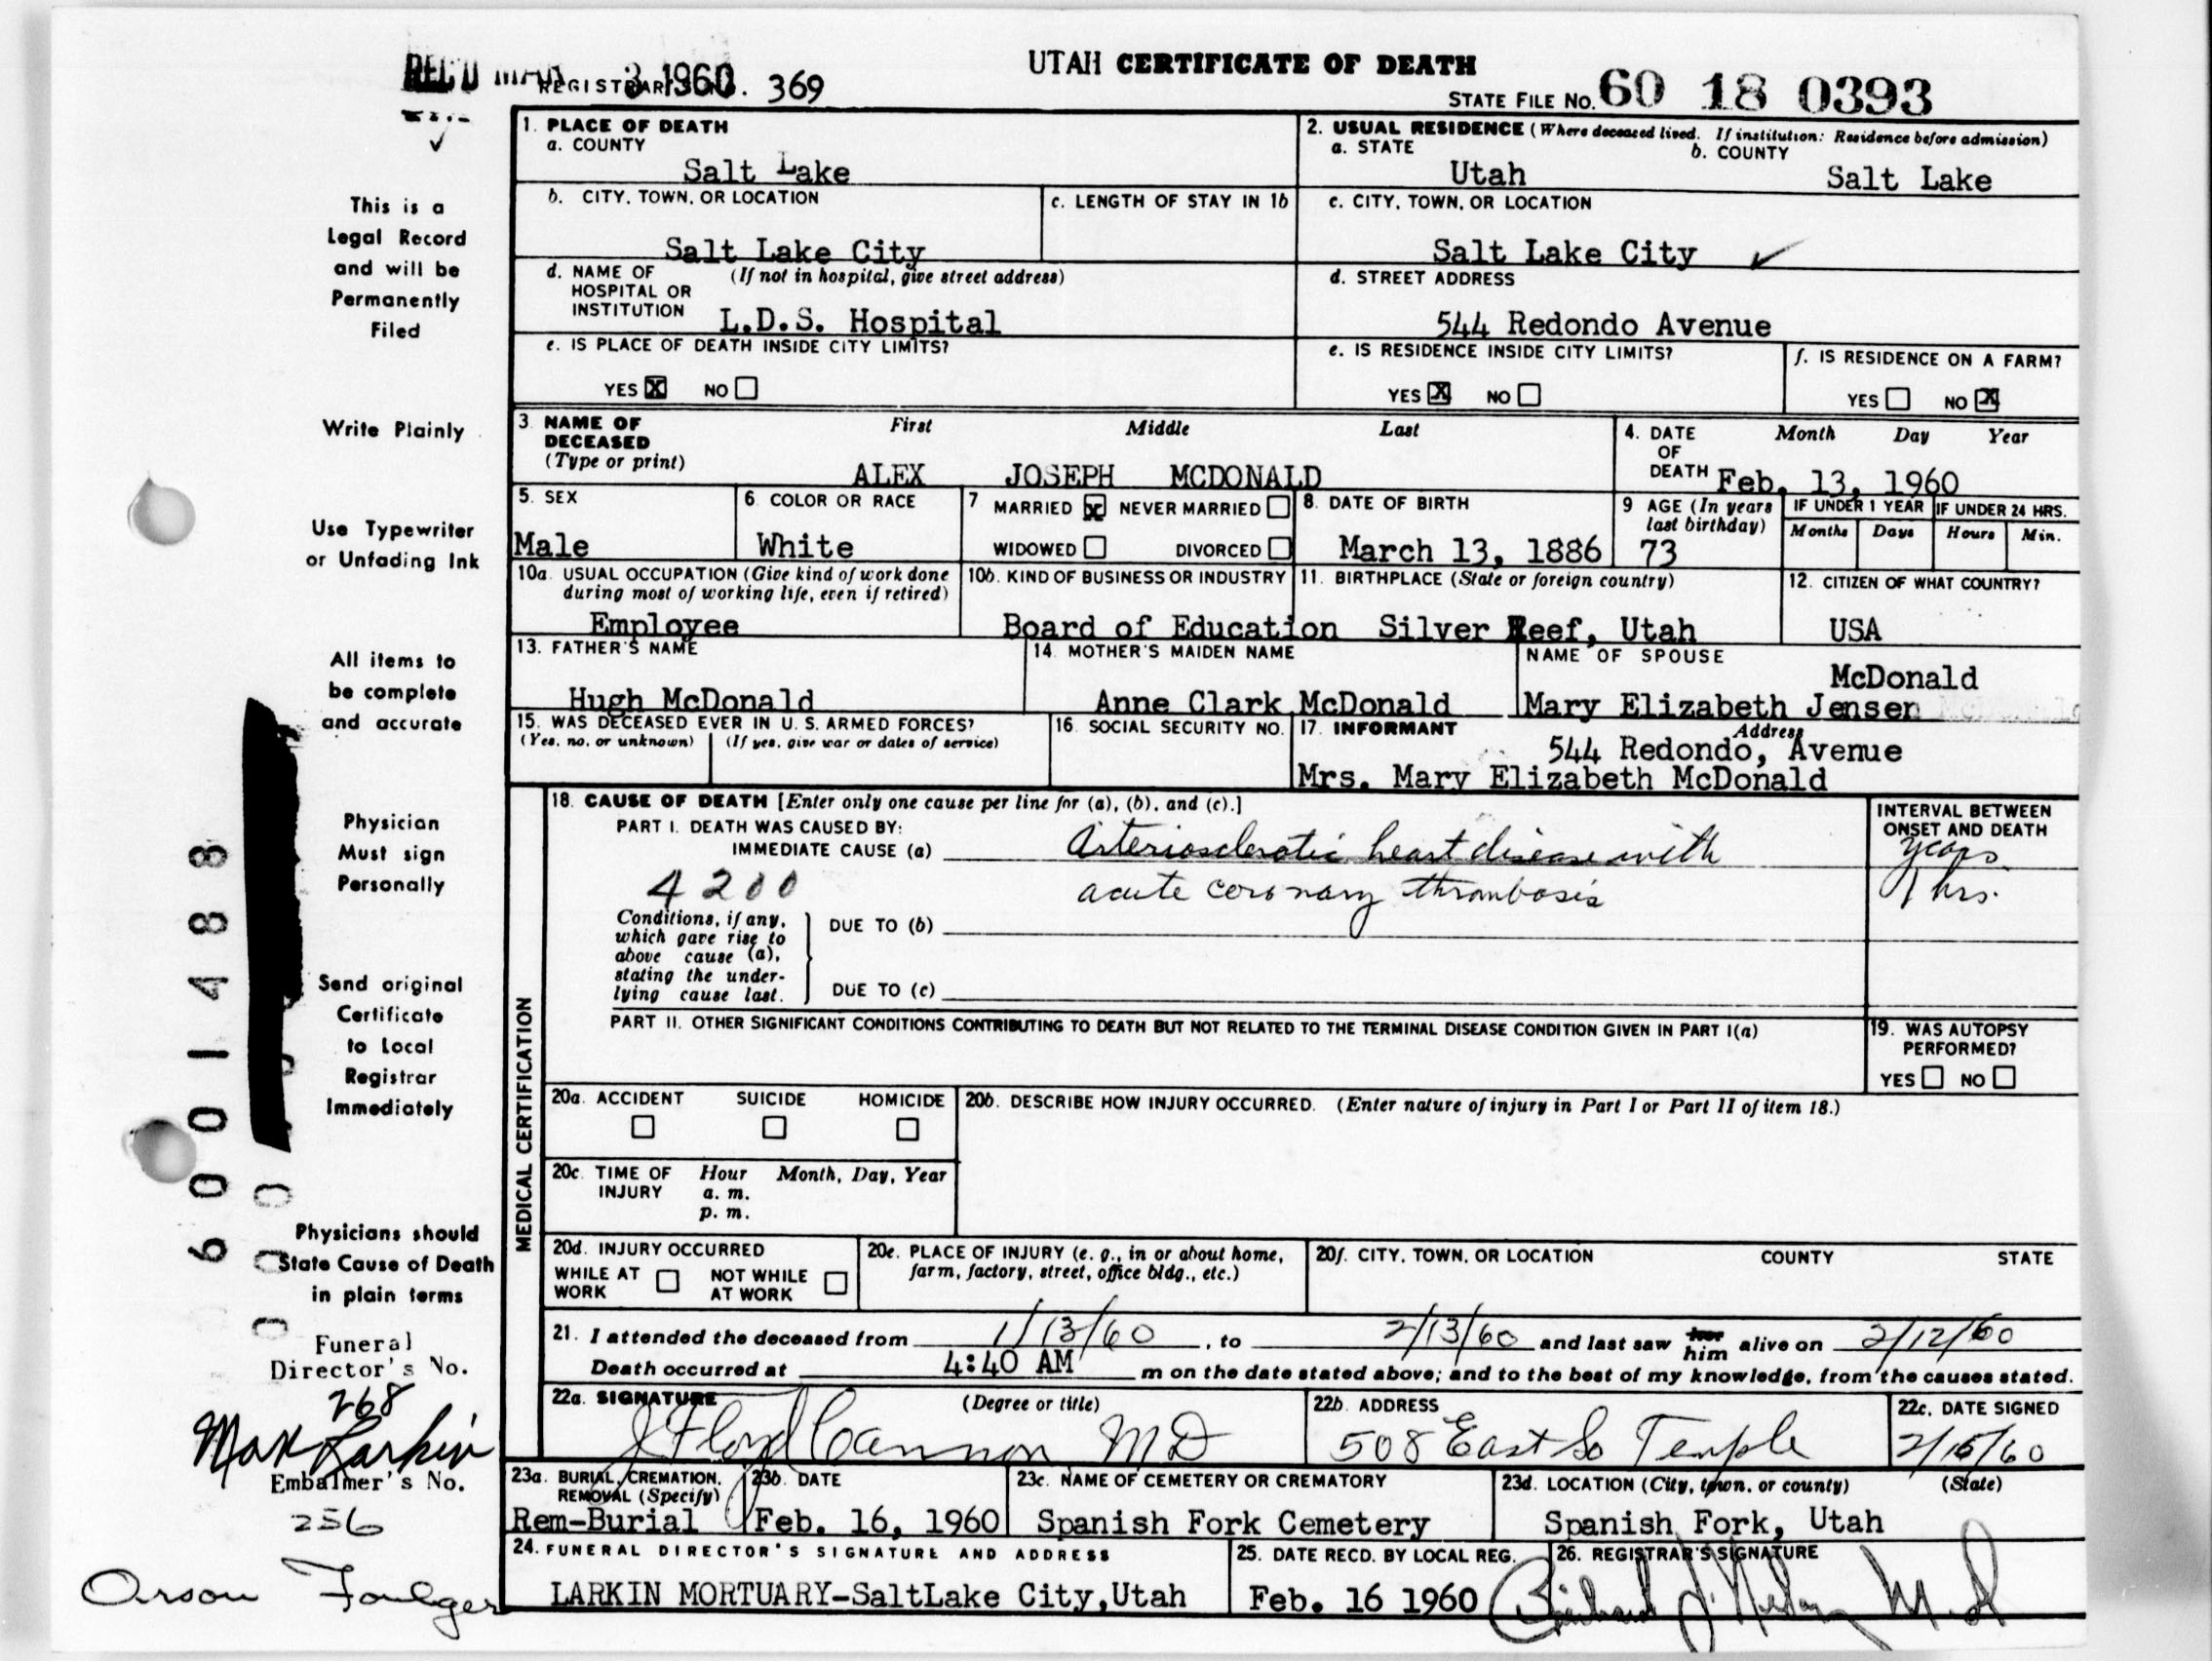 UTAH CERTIFICATE OF DEATH
REC'D MAR 3 1960
REGISTRAR'S NO. 369
STATE FILE NO. 60 18 0393
This is a
Legal Record
and will be
Permanently
Filed
Write Plainly
Use Typewriter
or Unfading Ink
All items to
be complete
and accurate
Physician
Must sign
Personally
Send original
Certificate
to Local
Registrar
Immediately
Physicians should
State Cause of Death
in plain terms
Funeral
Director's No.
268
Max Larkin
Embalmer's No.
256
Orson Foulger
6001488
1. PLACE OF DEATH
a. COUNTY
Salt Lake
b. CITY, TOWN, OR LOCATION
Salt Lake City
c. LENGTH OF STAY IN 1b
d. NAME OF (If not in hospital, give street address)
HOSPITAL OR
INSTITUTION L.D.S. Hospital
e. IS PLACE OF DEATH INSIDE CITY LIMITS?
YES X NO
2. USUAL RESIDENCE (Where deceased lived. If institution: Residence before admission)
a. STATE b. COUNTY
Utah Salt Lake
c. CITY, TOWN, OR LOCATION
Salt Lake City ✓
d. STREET ADDRESS
544 Redondo Avenue
e. IS RESIDENCE INSIDE CITY LIMITS?
YES X NO
f. IS RESIDENCE ON A FARM?
YES NO X
3 NAME OF First Middle Last
DECEASED
(Type or print)
ALEX JOSEPH MCDONALD
4. DATE Month Day Year
OF
DEATH Feb. 13, 1960
5. SEX
Male
6. COLOR OR RACE
White
7 MARRIED X NEVER MARRIED
WIDOWED DIVORCED
8. DATE OF BIRTH
March 13, 1886
9 AGE (In years
last birthday)
73
IF UNDER 1 YEAR IF UNDER 24 HRS.
Months Days Hours Min.
10a. USUAL OCCUPATION (Give kind of work done
during most of working life, even if retired)
Employee
10b. KIND OF BUSINESS OR INDUSTRY
Board of Education
11. BIRTHPLACE (State or foreign country)
Silver Reef, Utah
12. CITIZEN OF WHAT COUNTRY?
USA
13. FATHER'S NAME
Hugh McDonald
14. MOTHER'S MAIDEN NAME
Anne Clark McDonald
NAME OF SPOUSE
McDonald
Mary Elizabeth Jensen
15. WAS DECEASED EVER IN U. S. ARMED FORCES?
(Yes, no, or unknown) (If yes, give war or dates of service)
16. SOCIAL SECURITY NO.
17. INFORMANT Address
544 Redondo, Avenue
Mrs. Mary Elizabeth McDonald
MEDICAL CERTIFICATION
18. CAUSE OF DEATH [Enter only one cause per line for (a), (b), and (c).]
PART I. DEATH WAS CAUSED BY:
IMMEDIATE CAUSE (a) Arteriosclerotic heart disease with
4200 acute coronary thrombosis
INTERVAL BETWEEN
ONSET AND DEATH
years
hrs.
Conditions, if any,
which gave rise to
above cause (a),
stating the under-
lying cause last.
DUE TO (b)
DUE TO (c)
PART II. OTHER SIGNIFICANT CONDITIONS CONTRIBUTING TO DEATH BUT NOT RELATED TO THE TERMINAL DISEASE CONDITION GIVEN IN PART I(a)
19. WAS AUTOPSY
PERFORMED?
YES NO
20a. ACCIDENT SUICIDE HOMICIDE
20b. DESCRIBE HOW INJURY OCCURRED. (Enter nature of injury in Part I or Part II of item 18.)
20c. TIME OF Hour Month, Day, Year
INJURY a. m.
p. m.
20d. INJURY OCCURRED
WHILE AT NOT WHILE
WORK AT WORK
20e. PLACE OF INJURY (e. g., in or about home,
farm, factory, street, office bldg., etc.)
20f. CITY, TOWN, OR LOCATION COUNTY STATE
21. I attended the deceased from 1/13/60, to 2/13/60 and last saw her him alive on 2/12/60
Death occurred at 4:40 AM m on the date stated above; and to the best of my knowledge, from the causes stated.
22a. SIGNATURE (Degree or title)
J Floyd Cannon MD
22b. ADDRESS
508 East So Temple
22c. DATE SIGNED
2/15/60
23a. BURIAL, CREMATION,
REMOVAL (Specify)
Rem-Burial
23b. DATE
Feb. 16, 1960
23c. NAME OF CEMETERY OR CREMATORY
Spanish Fork Cemetery
23d. LOCATION (City, town, or county) (State)
Spanish Fork, Utah
24. FUNERAL DIRECTOR'S SIGNATURE AND ADDRESS
LARKIN MORTUARY-SaltLake City,Utah
25. DATE RECD. BY LOCAL REG.
Feb. 16 1960
26. REGISTRAR'S SIGNATURE